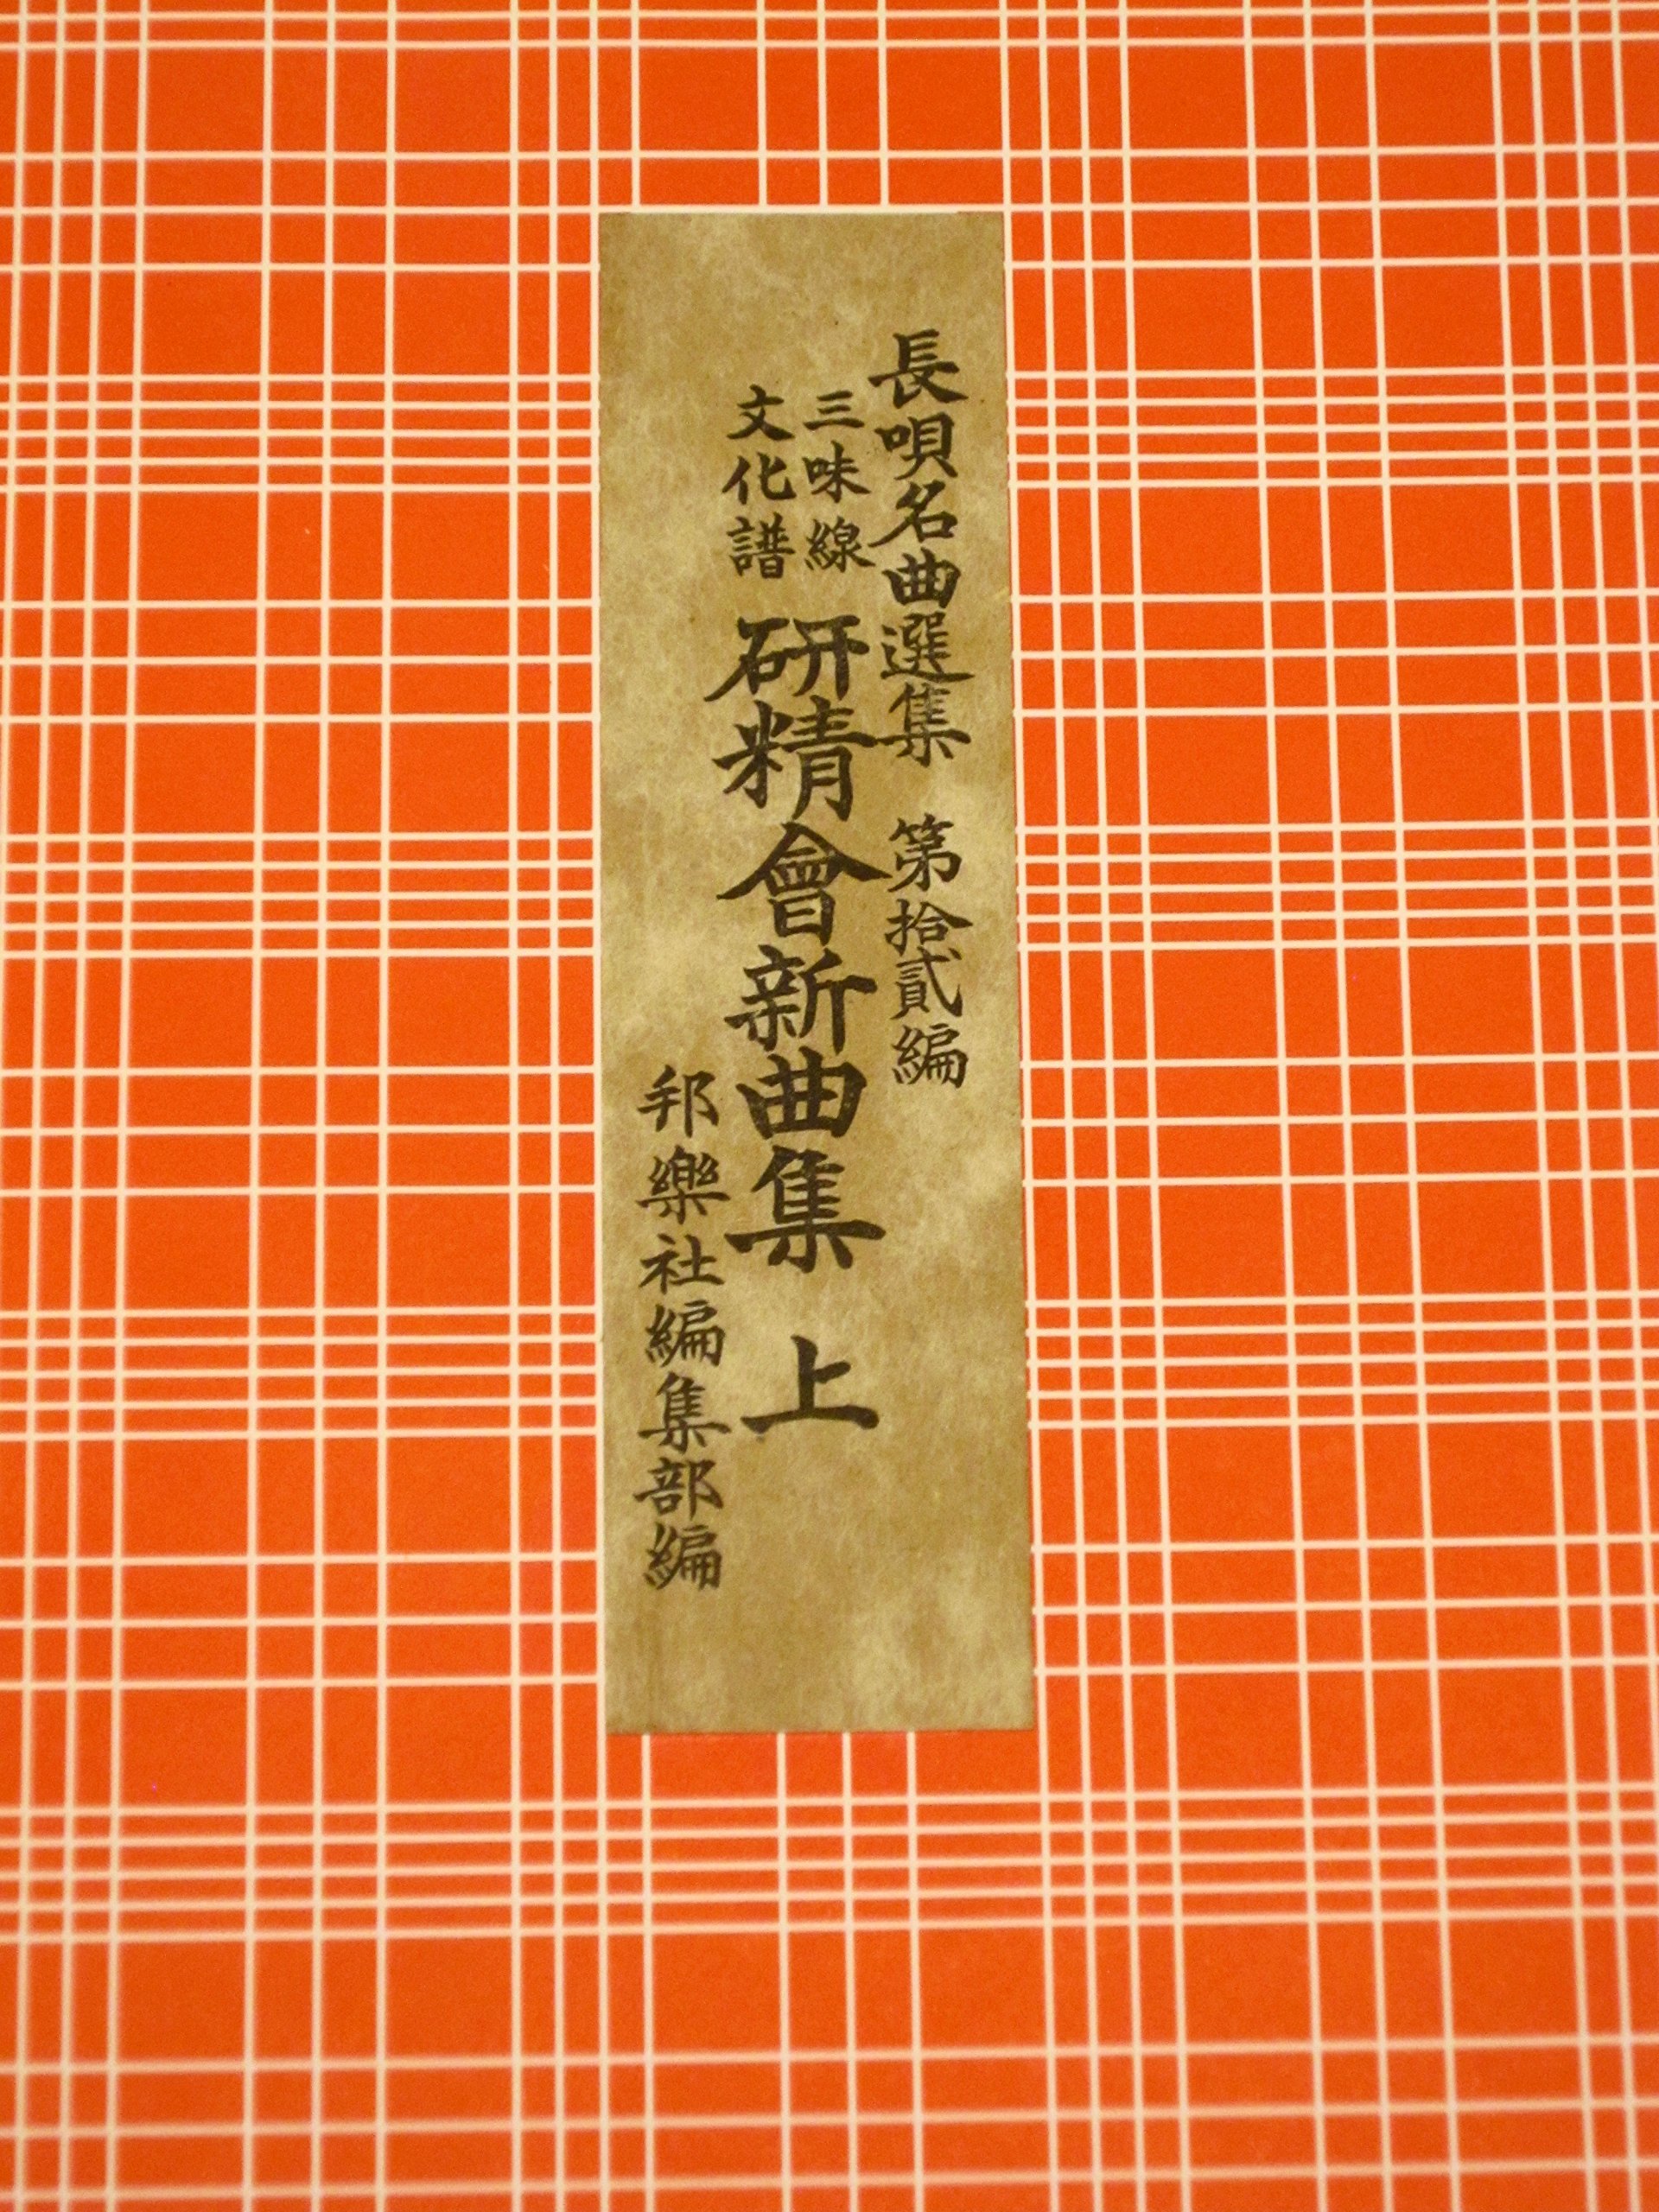 長唄名曲選集　第拾貳編
三味線
文化譜
研精會新曲集　上
邦樂社編集部編